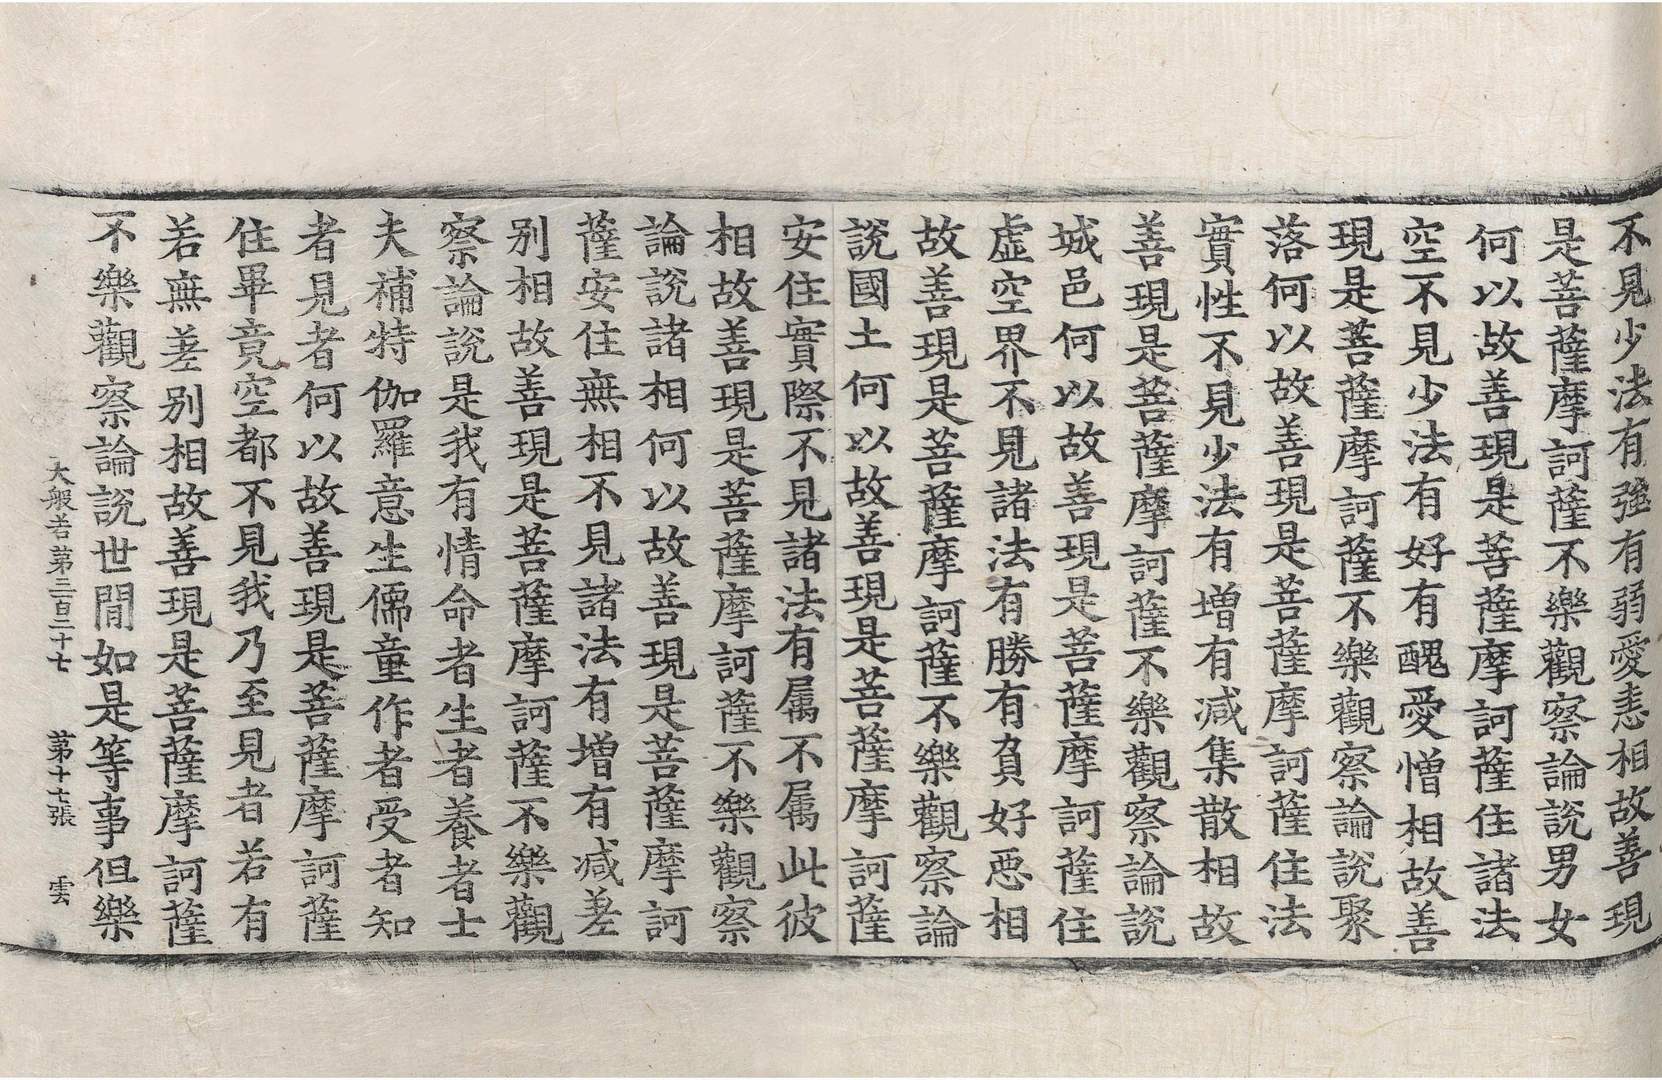 不見少法有強有弱愛恚相故善現
是菩薩摩訶薩不樂觀察論說男女
何以故善現是菩薩摩訶薩住諸法
空不見少法有好有醜愛憎相故善
現是菩薩摩訶薩不樂觀察論說聚
落何以故善現是菩薩摩訶薩住法
實性不見少法有增有减集散相故
善現是菩薩摩訶薩不樂觀察論說
城邑何以故善現是菩薩摩訶薩住
虛空界不見諸法有勝有負好惡相
故善現是菩薩摩訶薩不樂觀察論
說國土何以故善現是菩薩摩訶薩
安住實際不見諸法有属不属此彼
相故善現是菩薩摩訶薩不樂觀察
論說諸相何以故善現是菩薩摩訶
薩安住無相不見諸法有增有减差
别相故善現是菩薩摩訶薩不樂觀
察論說是我有情命者生者養者士
夫補特伽羅意生儒童作者受者知
者見者何以故善現是菩薩摩訶薩
住畢竟空都不見我乃至見者若有
若無差别相故善現是菩薩摩訶薩
不樂觀察論說世間如是等事但樂
大般若第三百二十七 第十七張 雲